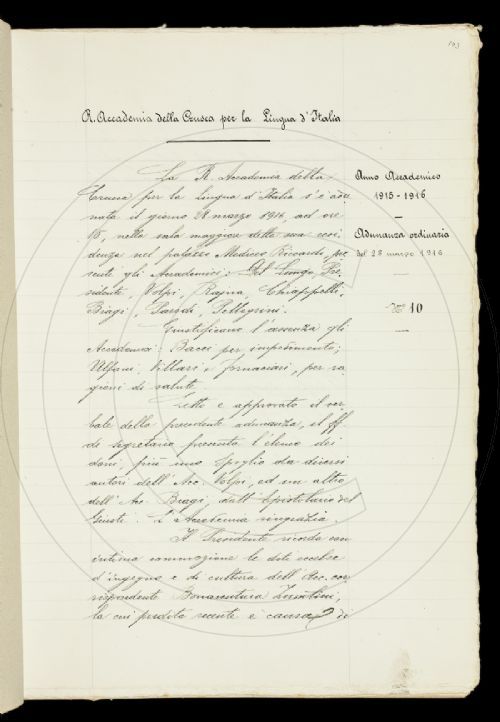 193
R. Accademia della Crusca per la Lingua d'Italia
La R. Accademia della
Crusca per la Lingua d'Italia s'è adu
nata il giorno 28 marzo 1916, ad ore
15, nella sala maggiore della sua resi
denza nel palazzo Mediceo Riccardi, pre
senti gli Accademici: Del Lungo, Pre
sidente, Volpi, Rajna, Chiappelli,
Biagi, Parodi, Pellegrini.
Giustificano l'assenza gli
Accademici: Bacci per impedimento;
Villari e Fornaciari, per ra
gioni di salute.
Letto e approvato il ver
bale della precedente adunanza, il ff.
de segretario presenta l'elenco dei
doni, più uno spoglio da diversi
autori dell'Acc. Volpi, ed un altro
dell'Acc. Biagi, dall'Epistolario del
Giusti. L'Accademia ringrazia.
Il Presidente ricorda con
intima commozione le doti eccelse
d'ingegno e di cultura dell'Acc. cor
rispondente Bonaventura Zumbini,
la cui perdita recente è causa di
Anno Accademico
1915-1916
Adunanza ordinaria
del 28 marzo 1916
N.º 10